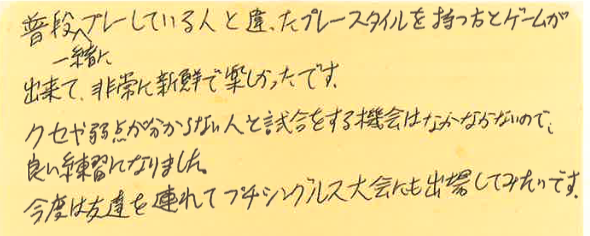 普段一緒にプレーしている人と違ったプレースタイルを持つ方とゲームが
出来て、非常に新鮮で楽しかったです。
クセや弱点が分からない人と試合をする機会はなかなかないので、
良い練習になりました。
今度は友達を連れてプチシングルス大会にも出場してみたいです。